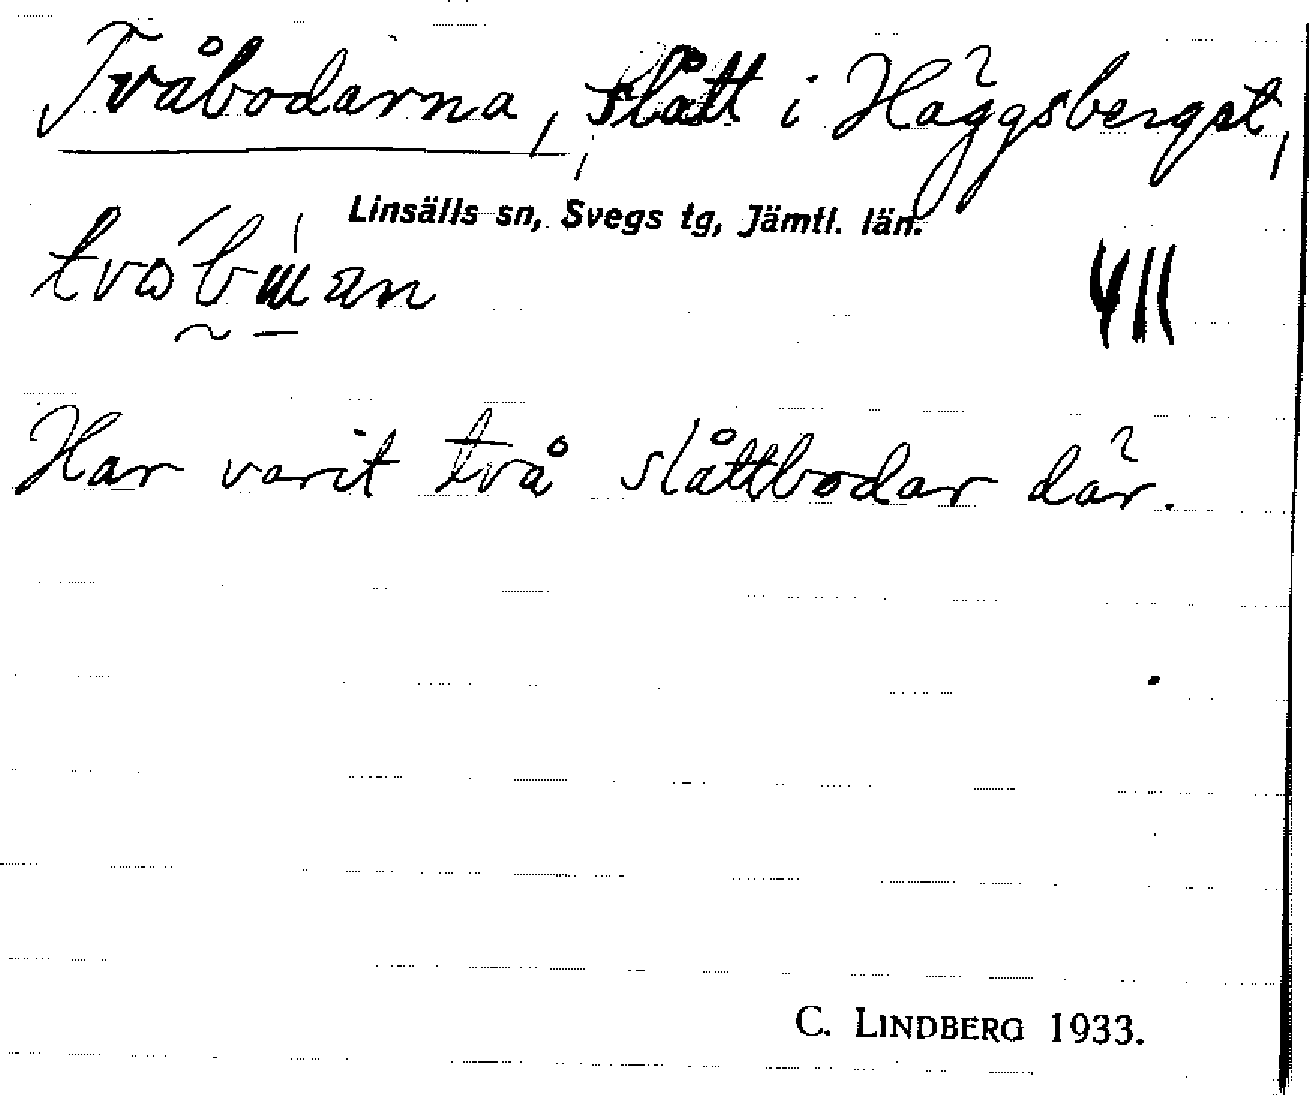 Tvåbodarna, slått i Häggsberget,
Linsälls sn, Svegs tg, Jämtl. län.
VII
Har varit två slåttbodar där.
C. LINDBERG 1933.